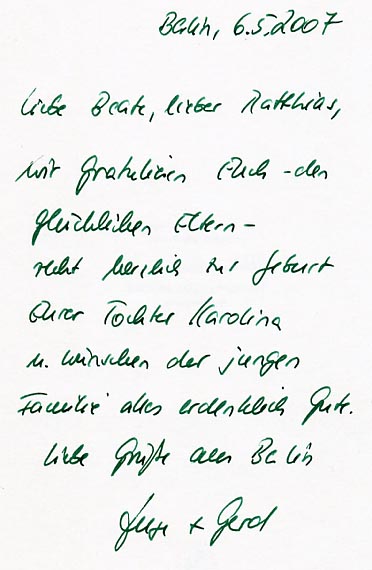 Berlin, 6.5.2007
Liebe Beate, lieber Matthias,
wir gratulieren Euch - den
glücklichen Eltern -
recht herzlich zur Geburt
Eurer Tochter Karolina
u. wünschen der jungen
Familie alles erdenklich Gute.
Liebe Grüße aus Berlin
+ Gerd